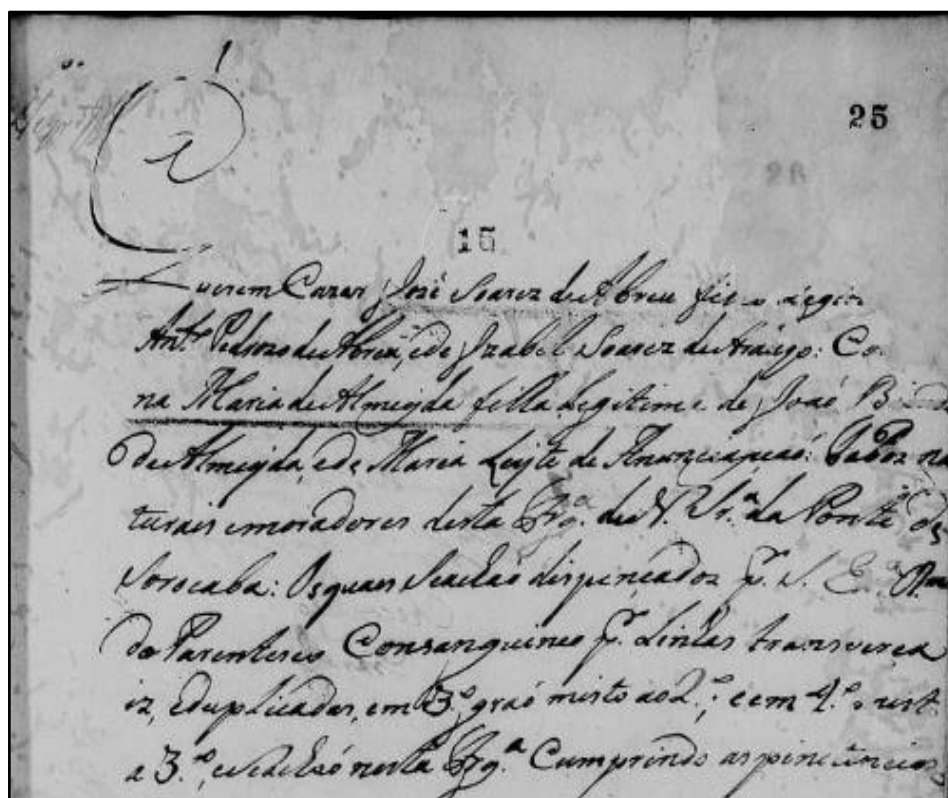 25
28
15
Querem Cazar Joze Soarez de Abreu filho Legit
Ant.º Pedrozo de Abreu, e de Izabel Soarez de Araujo: Co
na Maria de Almeyda filha Legitima de Joaó B
de Almeyda, e de Maria Leyte da Anunciaçaó: Todos na
turais emoradores desta Frg.ª de N. Sr.ª da Ponte de
Sorocaba: Osquaes Seachaó dispençados p.r S. E. R.ma
do Parentesco Consanguineo p.r Linhas transverça
iz, Eduplicadas, em 3.º graó misto ao 2.º, e em 4.º mist
a 3.º, eseachaó nesta Frg.ª Cumprindo aspenitencias